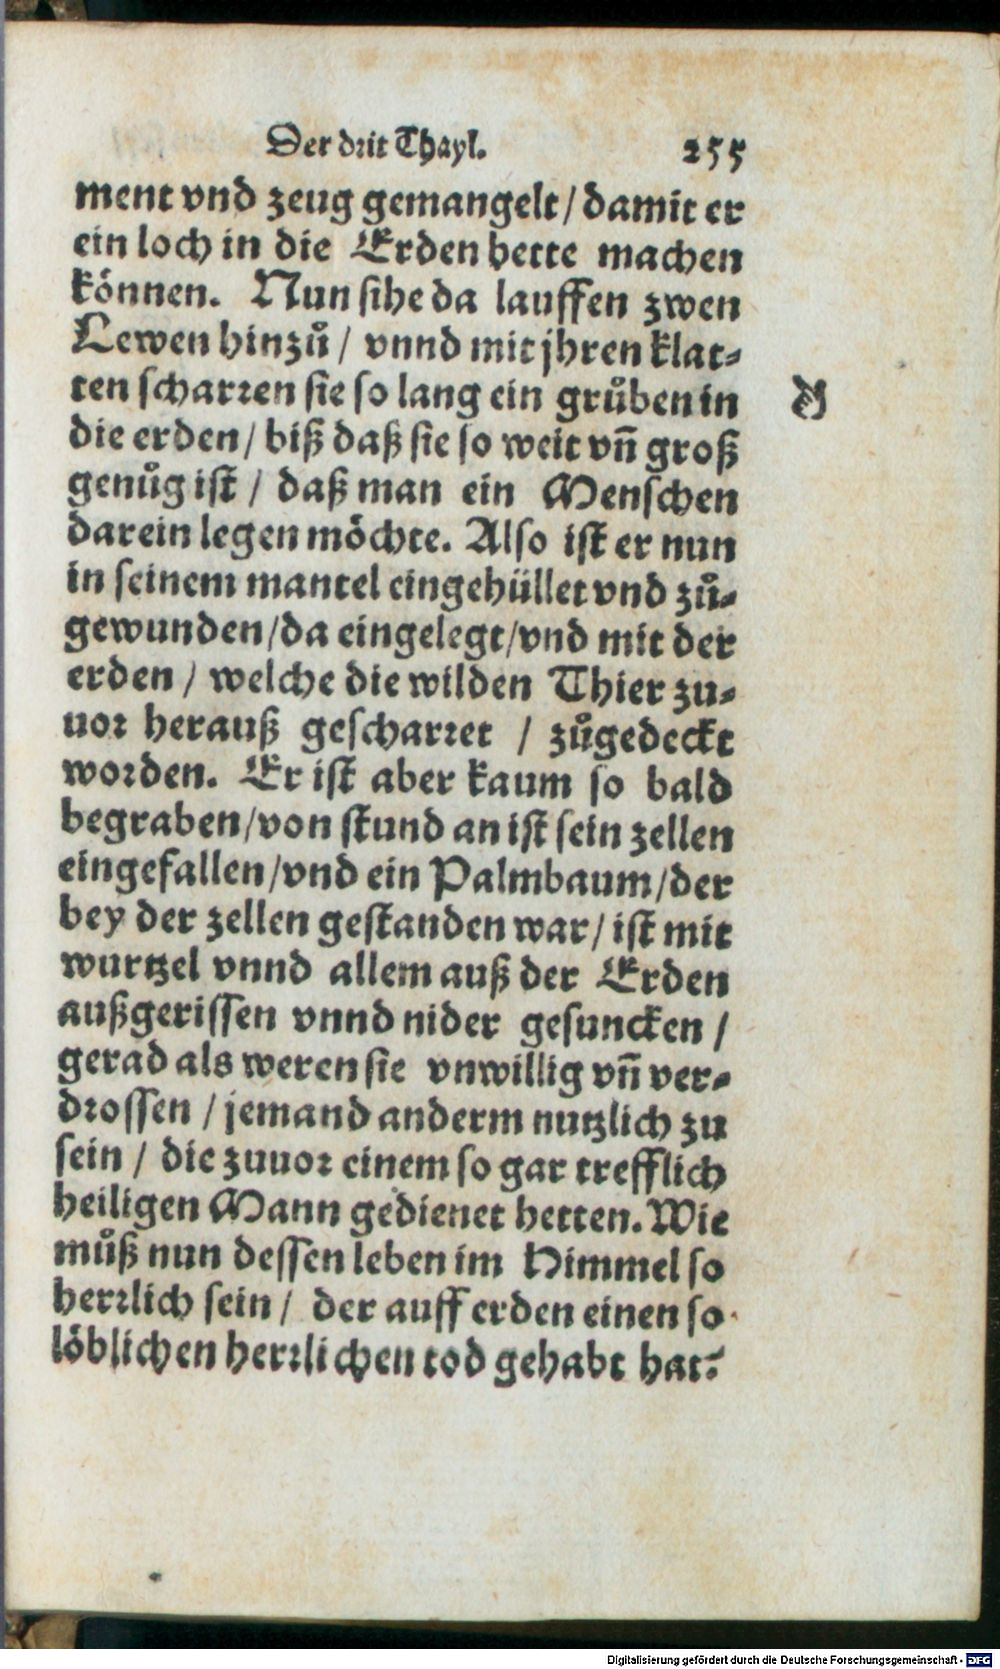 Der drit Thayl. 255
ment vnd zeug gemangelt / damit er
ein loch in die Erden hette machen
können. Nun sihe da lauffen zwen
Lewen hinzů / vnnd mit jhren klat-
ten scharren sie so lang ein grůben in
die erden / biß daß sie so weit vñ groß
genůg ist / daß man ein Menschen
darein legen möchte. Also ist er nun
in seinem mantel eingehüllet vnd zů-
gewunden / da eingelegt / vnd mit der
erden / welche die wilden Thier zu-
uor herauß gescharret / zůgedeckt
worden. Er ist aber kaum so bald
begraben / von stund an ist sein zellen
eingefallen / vnd ein Palmbaum / der
bey der zellen gestanden war / ist mit
wurtzel vnnd allem auß der Erden
außgerissen vnnd nider gesuncken /
gerad als weren sie vnwillig vñ ver-
drossen / jemand anderm nutzlich zu
sein / die zuuor einem so gar trefflich
heiligen Mann gedienet hetten. Wie
můß nun dessen leben im Himmel so
herrlich sein / der auff erden einen so
löblichen herrlichen tod gehabt hat?
Digitalisierung gefördert durch die Deutsche Forschungsgemeinschaft - DFG